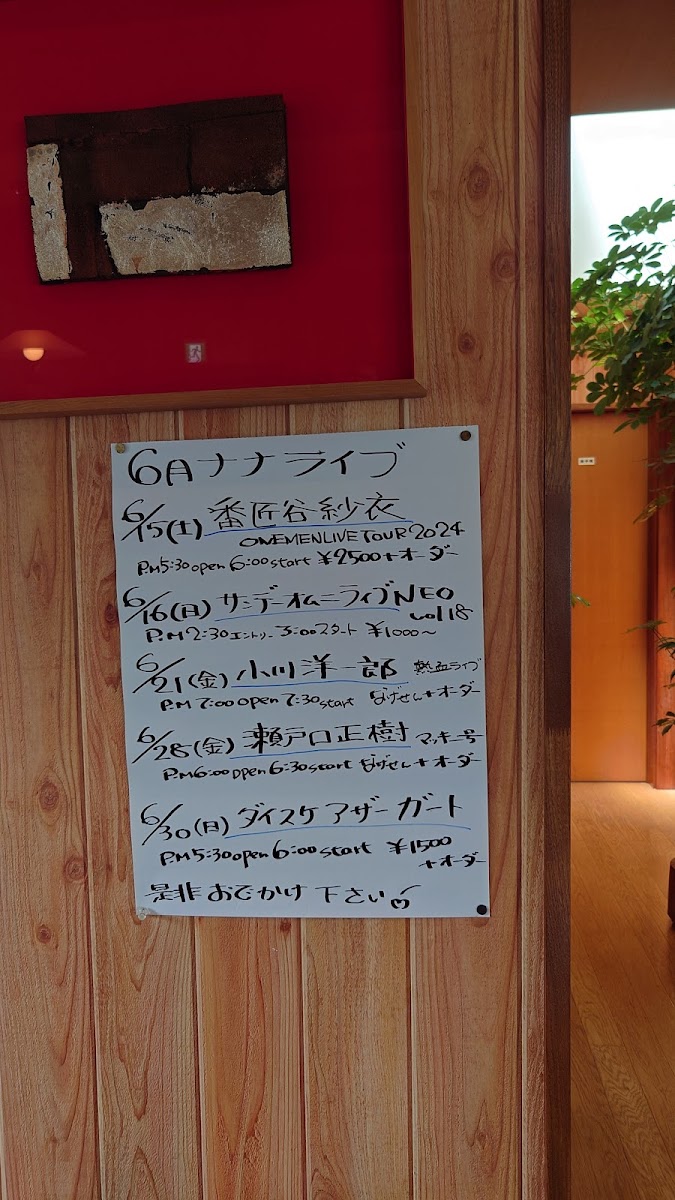 6月ナナライブ
6/15(土) 番匠谷紗衣
ONEMENLIVE TOUR 2024
P.M5:30open 6:00start ¥2500+オーダー
6/16(日) サンデーオムニライブNEO
vol18
P.M2:30エントリー 3:00スタート ¥1000〜
6/21(金) 小川洋一郎 熱血ライブ
P.M7:00open 7:30start なげせん+オーダー
6/28(金) 瀬戸口正樹 マッキー号
P.M6:00open 6:30start なげせん+オーダー
6/30(日) ダイスケアザーガート
P.M5:30open 6:00start ¥1500
+オーダー
是非おでかけ下さい